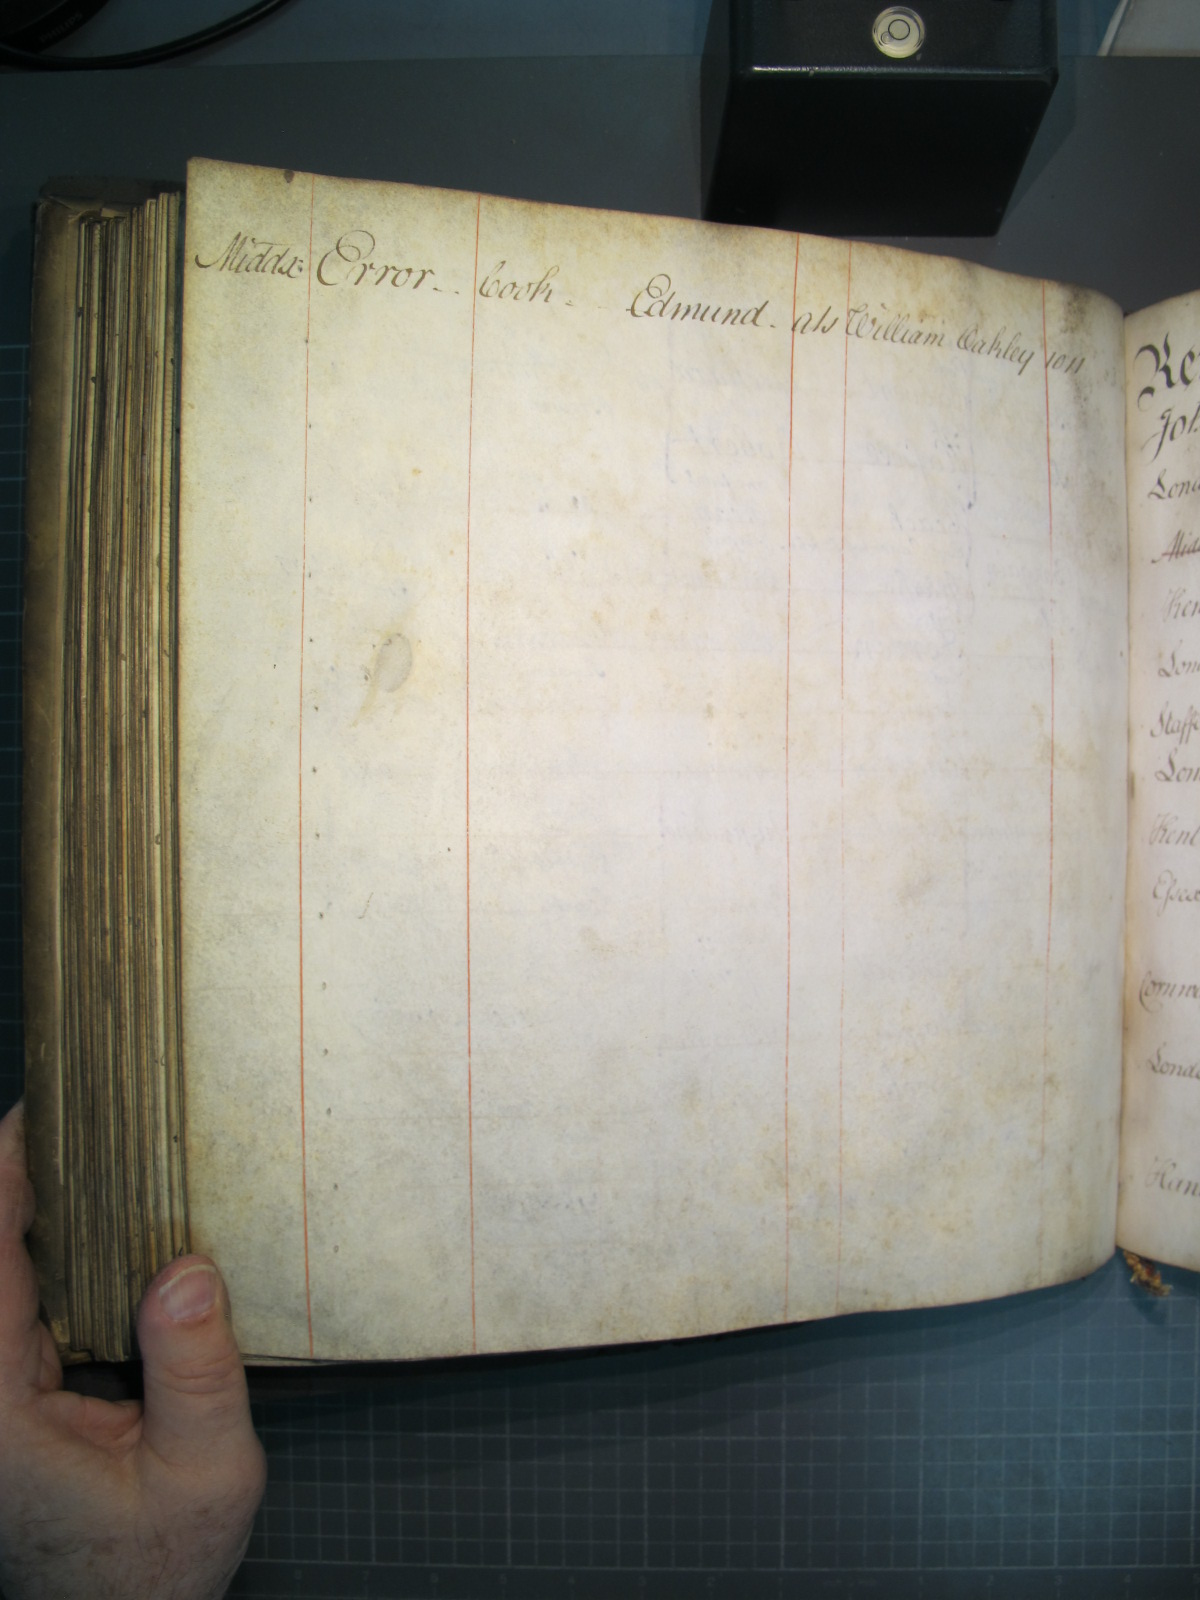 Middx: Error - - Cook - - Edmund - als William Oakley 1011
Joh
Lond
Midd
Ken
Lond
Staff
Lon
Kent
Essex
Cornwa
Londo
PHILIPS